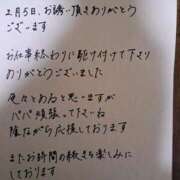 2月5日、お誘い頂きありがとう
ございます
お仕事終わりに駆け付けて下さり
ありがとうございました
色々とあると思いますが
パパ頑張って下さいね
陰ながら応援しております
またお時間の許す時楽しみに
しております